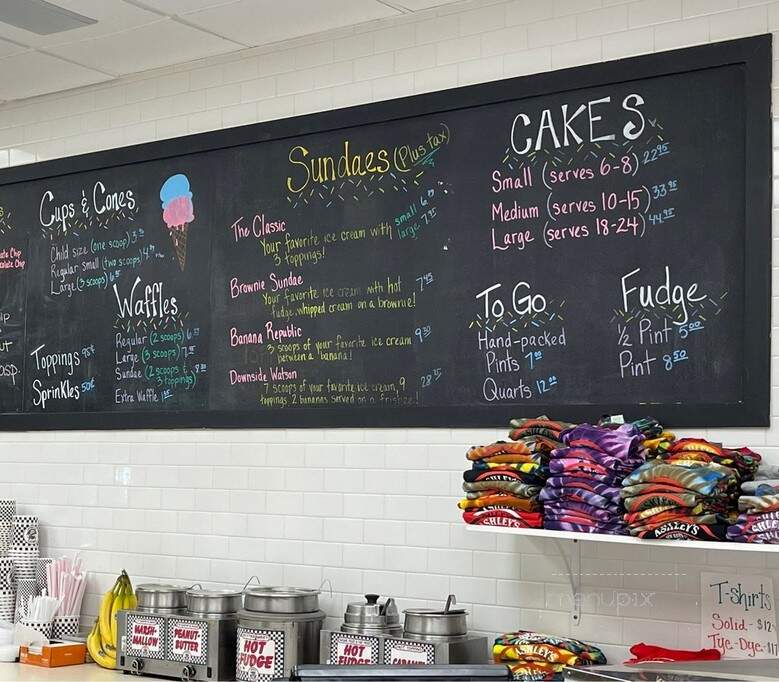 Cups & Cones
Child size (one scoop)
Regular small (two scoops)
Large (3 scoops)
Waffles
Regular (2 scoops)
Large (3 scoops)
Sundae (2 scoops &
3 toppings)
Extra Waffle
Toppings 95¢
Sprinkles 50¢
Sundaes (Plus tax)
The Classic
Your favorite ice cream with
3 toppings!
small
large
Brownie Sundae 7 45
Your favorite ice cream with hot
fudge, whipped cream on a brownie!
Banana Republic
3 scoops of your favorite ice cream
between a banana!
Downside Watson
7 scoops of your favorite ice cream, 9
toppings 2 bananas served on a frisbee!
CAKES
Small (serves 6-8) 22 95
Medium (serves 10-15) 33 95
Large (serves 18-24) 44 95
To Go
Hand-packed
Pints 7 00
Quarts 12 00
Fudge
1/2 Pint 5 00
Pint 8 50
ASHLEY'S
MARSH-
MALLOW
PEANUT-
BUTTER
HOT
FUDGE
HOT
FUDGE
CARAMEL
T-shirts
Solid - $12
Tye-Dye-$17
menupix